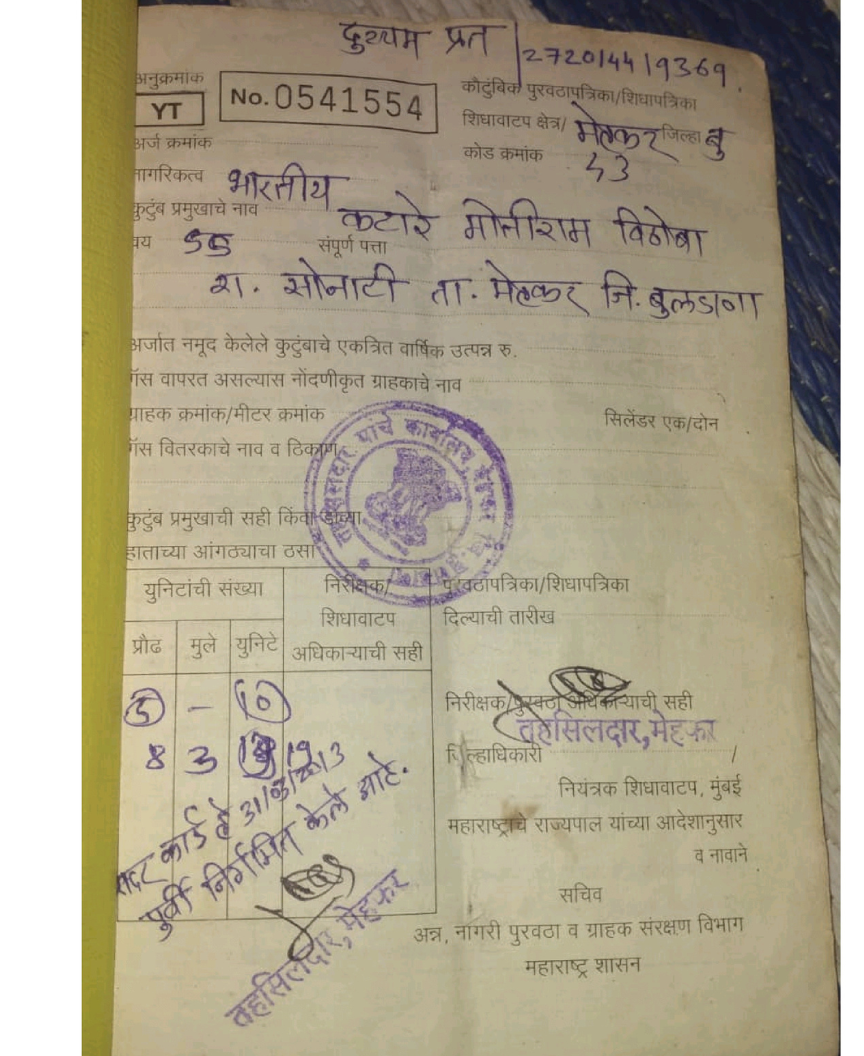 दुय्यम प्रत | 272014419369
अनुक्रमांक
YT No. 0541554
कौटुंबिक पुरवठापत्रिका/शिधापत्रिका
शिधावाटप क्षेत्र/ मेहकर जिल्हा बु
कोड क्रमांक 43
अर्ज क्रमांक
नागरिकत्व भारतीय
कुटुंब प्रमुखाचे नाव कटारे मोतीराम विठोबा
वय 55 संपूर्ण पत्ता
रा. सोनाटी ता. मेहकर जि. बुलडाणा
अर्जात नमूद केलेले कुटुंबाचे एकत्रित वार्षिक उत्पन्न रु.
गॅस वापरत असल्यास नोंदणीकृत ग्राहकाचे नाव
ग्राहक क्रमांक/मीटर क्रमांक सिलेंडर एक/दोन
गॅस वितरकाचे नाव व ठिकाण
तहसिलदार यांचे कार्यालय, मेहकर
कुटुंब प्रमुखाची सही किंवा डाव्या
हाताच्या आंगठ्याचा ठसा
युनिटांची संख्या
प्रौढ मुले युनिटे
निरीक्षक/
शिधावाटप
अधिकाऱ्याची सही
5 – 10
8 3 19
सदर कार्ड हे 31/03/2013
पुर्वी निर्गमित केले आहे.
तहसिलदार, मेहकर
पुरवठापत्रिका/शिधापत्रिका
दिल्याची तारीख
निरीक्षक/पुरवठा अधिकाऱ्याची सही
तहसिलदार, मेहकर
जिल्हाधिकारी /
नियंत्रक शिधावाटप, मुंबई
महाराष्ट्राचे राज्यपाल यांच्या आदेशानुसार
व नावाने
सचिव
अन्न, नागरी पुरवठा व ग्राहक संरक्षण विभाग
महाराष्ट्र शासन